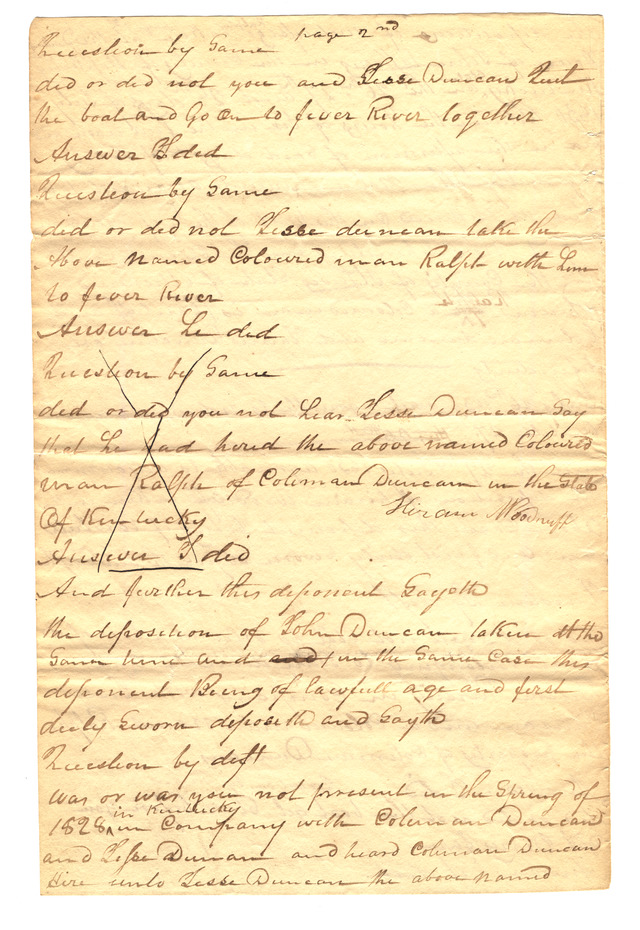 page 2nd
Question by Same
did or did not you and Jesse Duncan Quit
the boat and Go on to fever River together
Answer I did
Question by Same
did or did not Jesse duncan take the
Above Named Coloured man Ralph with him
to fever River
Answer he did
Question by Same
did or did you not hear Jesse Duncan Say
that he had hired the above named Coloured
man Ralph of Coleman Duncan in the State
Of Kentucky
Hiram Woodruff
Answer I did
And further this deponent Sayeth
the deposition of John Duncan taken at the
Same time and and in the Same Case this
deponent Being of lawfull age and first
duly Sworn deposeth and Sayth
Question by deft
was or was you not present in the Spring of
in Kentucky
1828 in Company with Coleman Duncan
and Jesse Duncan and heard Coleman Duncan
Hire unto Jesse Duncan the above named